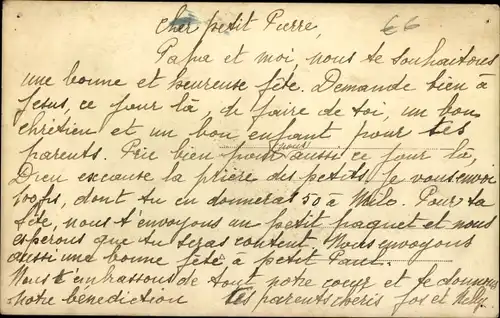 66
Cher petit Pierre,
Papa et moi, nous te souhaitons
une bonne et heureuse fête. Demande bien à
Jesus, ce jour là, de faire de toi, un bon
chrétien et un bon enfant pour tes
parents. Prie bien pour nous aussi ce jour là,
Dieu exauce la prière des petits. Je vous envoie
100 frs, dont tu en donneras 50 à Mile. Pour ta
fête, nous t'envoyons un petit paquet et nous
esperons que tu seras content. Nous envoyons
aussi une bonne fête à petit Paul.
Nous t'embrassons de tout notre coeur et te donnons
notre bénediction tes parents chéris Jos et Nelly